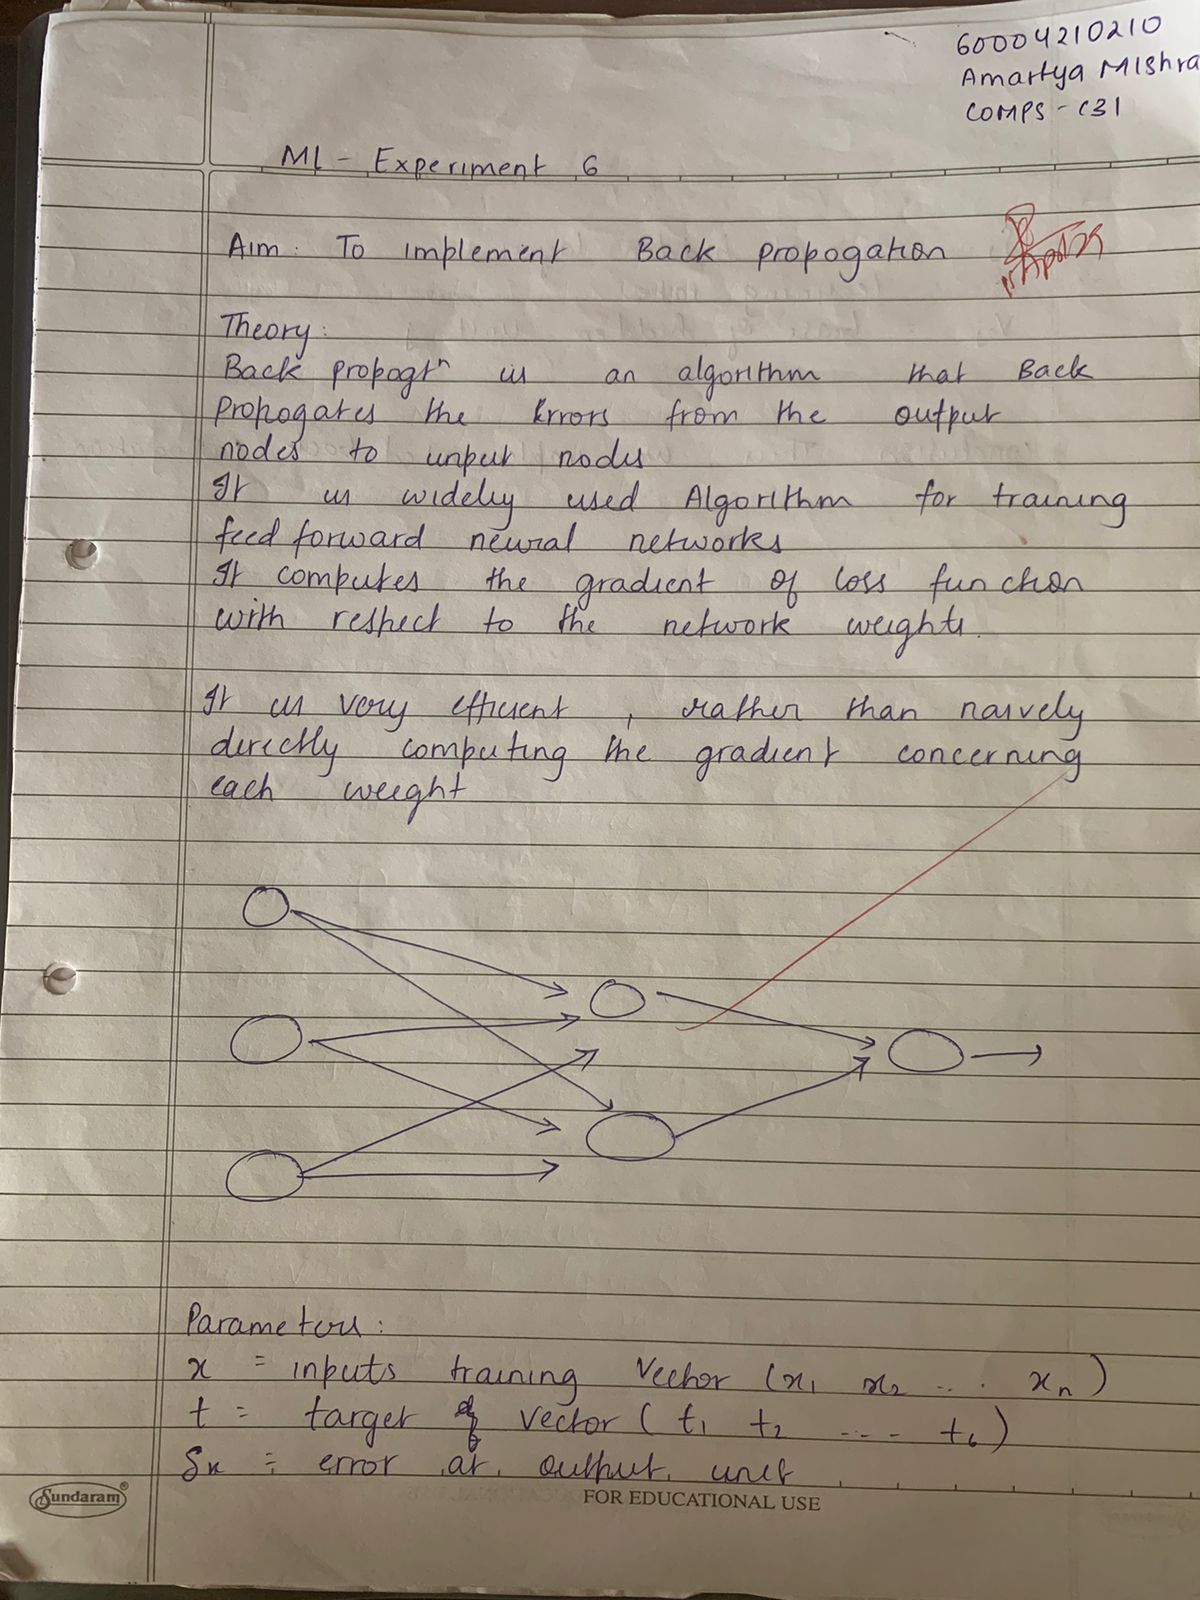 60004210210
Amartya Mishra
COMPS - C31
ML - Experiment 6
Aim: To implement Back propogation
Theory:
Back propogtⁿ is an algorithm that Back
propogates the Errors from the output
nodes to input nodes
It is widely used Algorithm for training
feed forward neural networks
It computes the gradient of loss function
with respect to the network weights.
It is very efficient , rather than naively
directly computing the gradient concerning
each weight
Parameters:
x = inputs training Vector (x₁ x₂ ... xₙ)
t = target vector (t₁ t₂ ....
= error at output unit
Sundaram®
FOR EDUCATIONAL USE